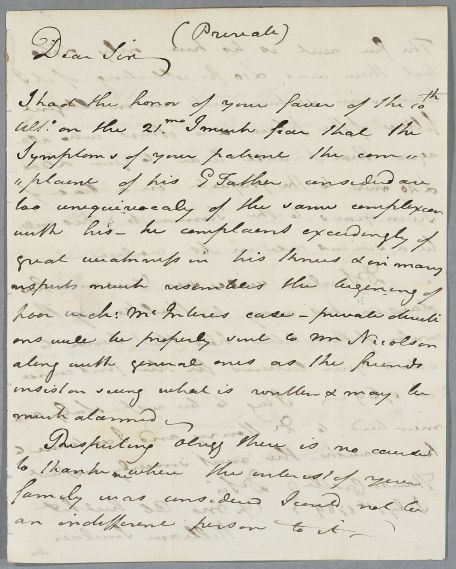 (Private)
Dear Sir
I had the honor of your favor of the 10th
Ulto. on the 21.mo I much fear that the
symptoms of your patient the com=
"plaint of his G Father considered are
too unequivocaly of the same complexion
with his - he complaint exceedingly of
great weakness in his knees & in many
respects much resembles the begining of
poor Mc case - private directi
ons will be properly sent to Mr Nicolson
along with general ones as the friends
insist on seeing what is written & may be
much alarmed
Respecting there is no cause
to thank me where the interest of your
family was considered I could not be
an indifferent person to it